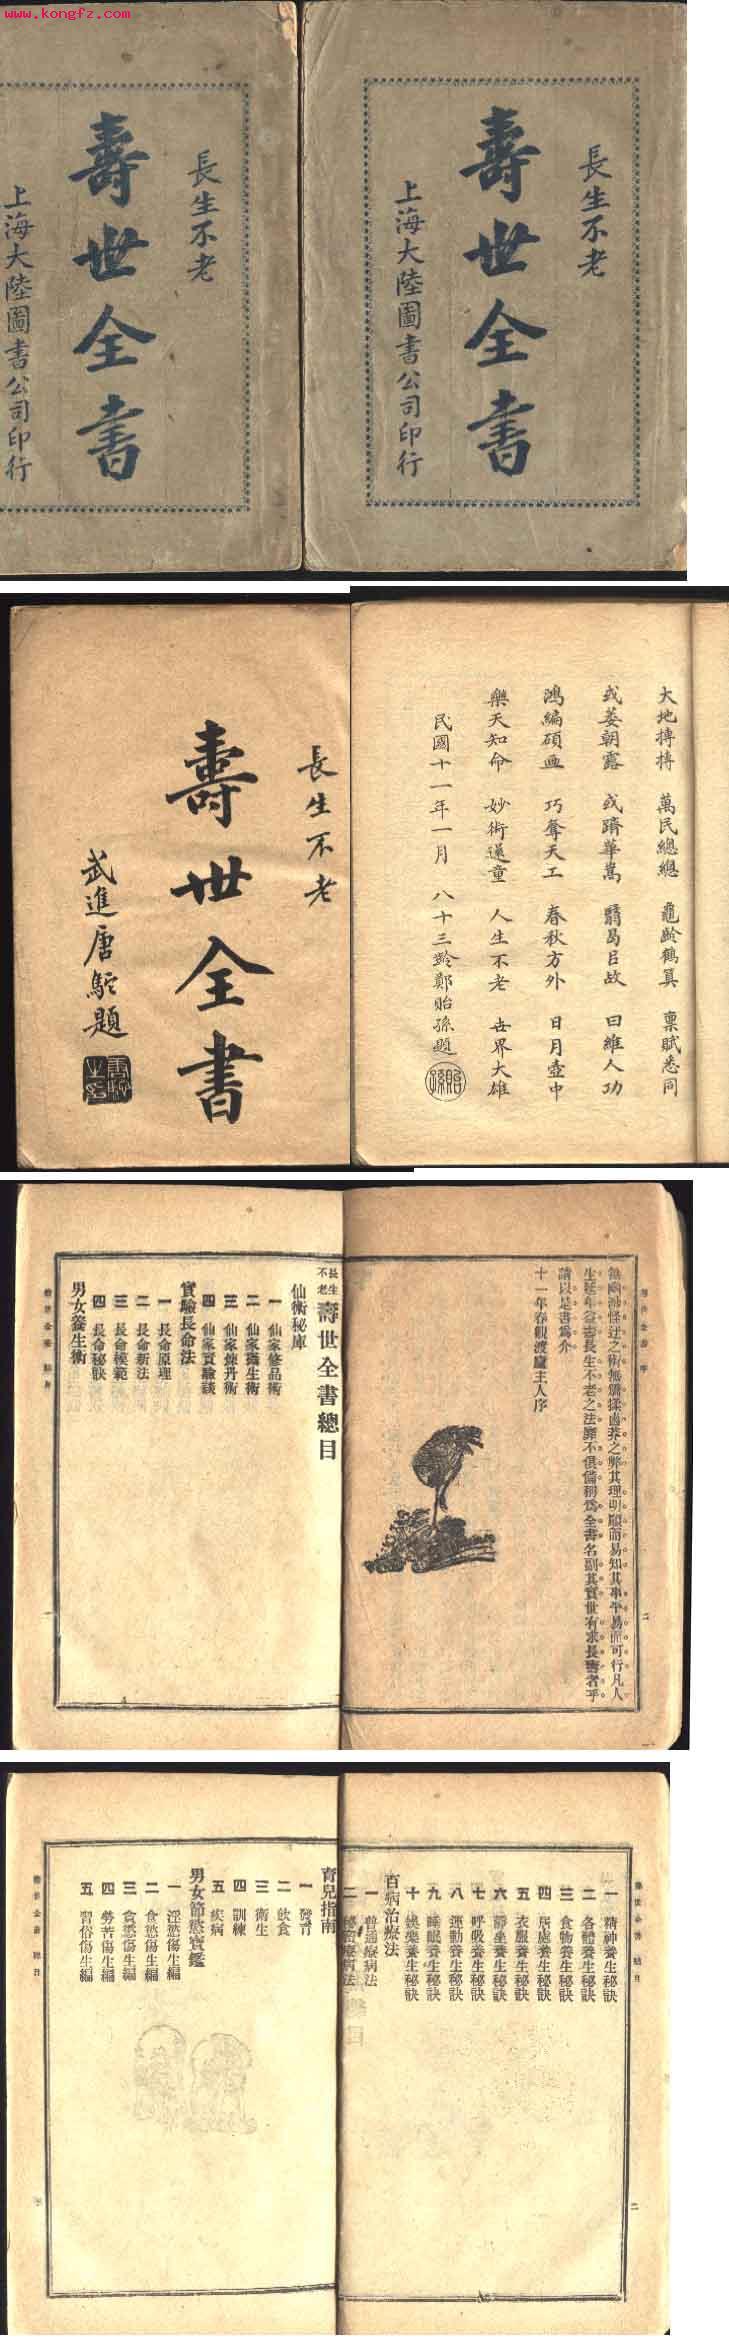 www.kongfz.com
長生不老
壽世全書
上海大陸圖書公司印行
長生不老
壽世全書
上海大陸圖書公司印行
長生不老
壽世全書
武進唐駝題
大地摶摶 萬民總總 龜齡鶴算 稟賦悉同
或萎朝露 或躋華嵩 曰維人功
鴻編碩畫 巧奪天工 春秋方外 日月壺中
樂天知命 妙術還童 人生不老 世界大雄
民國十一年一月 八十三齡鄭貽孫題
貽孫
之術無矯揉鹵莽之弊其理明顯而易知其事平易而可行凡人
生延年益壽長生不老之法靡不俱備稱為全書名副其實世有求長壽者乎
請以是書為介
十一年春觀渡廬主人序
二
長生不老壽世全書總目
仙術秘庫
一 仙家修品術
二 仙家攝生術
三 仙家煉丹術
四 仙家實驗談
實驗長命法
一 長命原理
二 長命新法
三 長命模範
四 長命秘訣
男女養生術
壽世全書 總目
一
壽世全書 總目
一 精神養生秘訣
二 各體養生秘訣
三 食物養生秘訣
四 居處養生秘訣
五 衣服養生秘訣
六 靜坐養生秘訣
七 呼吸養生秘訣
八 運動養生秘訣
九 睡眠養生秘訣
十 娛樂養生秘訣
百病治療法
一 普通療病法
二 秘密療病法
二
育兒指南
一 發育
二 飲食
三 衛生
四 訓練
五 疾病
男女節慾寶鑑
一 淫慾傷生編
二 食慾傷生編
三 貪慾傷生編
四 勞苦傷生編
五 習俗傷生編
壽世全書 總目